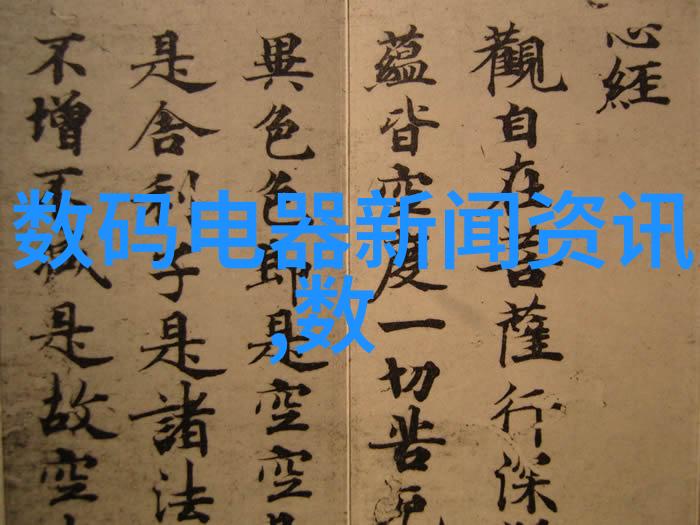 心經
觀自在菩薩行深
蘊皆空度一切苦厄
異色色即是空空
是舍利子是諸法
不增不減是故空
数码电器新闻资讯
,数